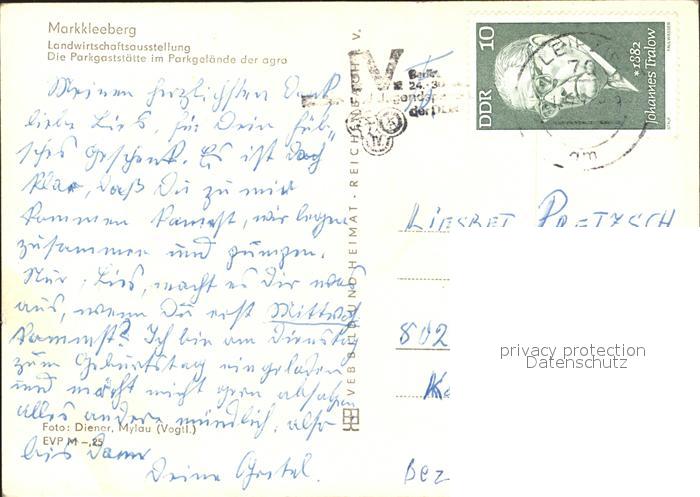 Markkleeberg
Landwirtschaftsausstellung
Die Parkgaststätte im Parkgelände der agra
Meinen herzlichsten Dank
liebe Lies, für Dein hüb-
sches Geschenk. Es ist doch
klar, daß Du zu mir
kommen kannst, wir legen
zusammen und pumpen.
Nur, Lies, macht es Dir was
aus, wenn Du erst Mittwoch
kommst? Ich bin am Dienstag
zum Geburtstag eingeladen
und möcht nicht gern absagen
alles andere mündlich, also
bis dann
Deine Gretel.
Foto: Diener, Mylau (Vogtl.)
EVP M -,25
VEB BILD UND HEIMAT · REICHENBACH I. V.
10
DDR
*1882
Johannes Tralow
Berlin
LIESBET PRETZSCH
802
Bez
privacy protection
Datenschutz